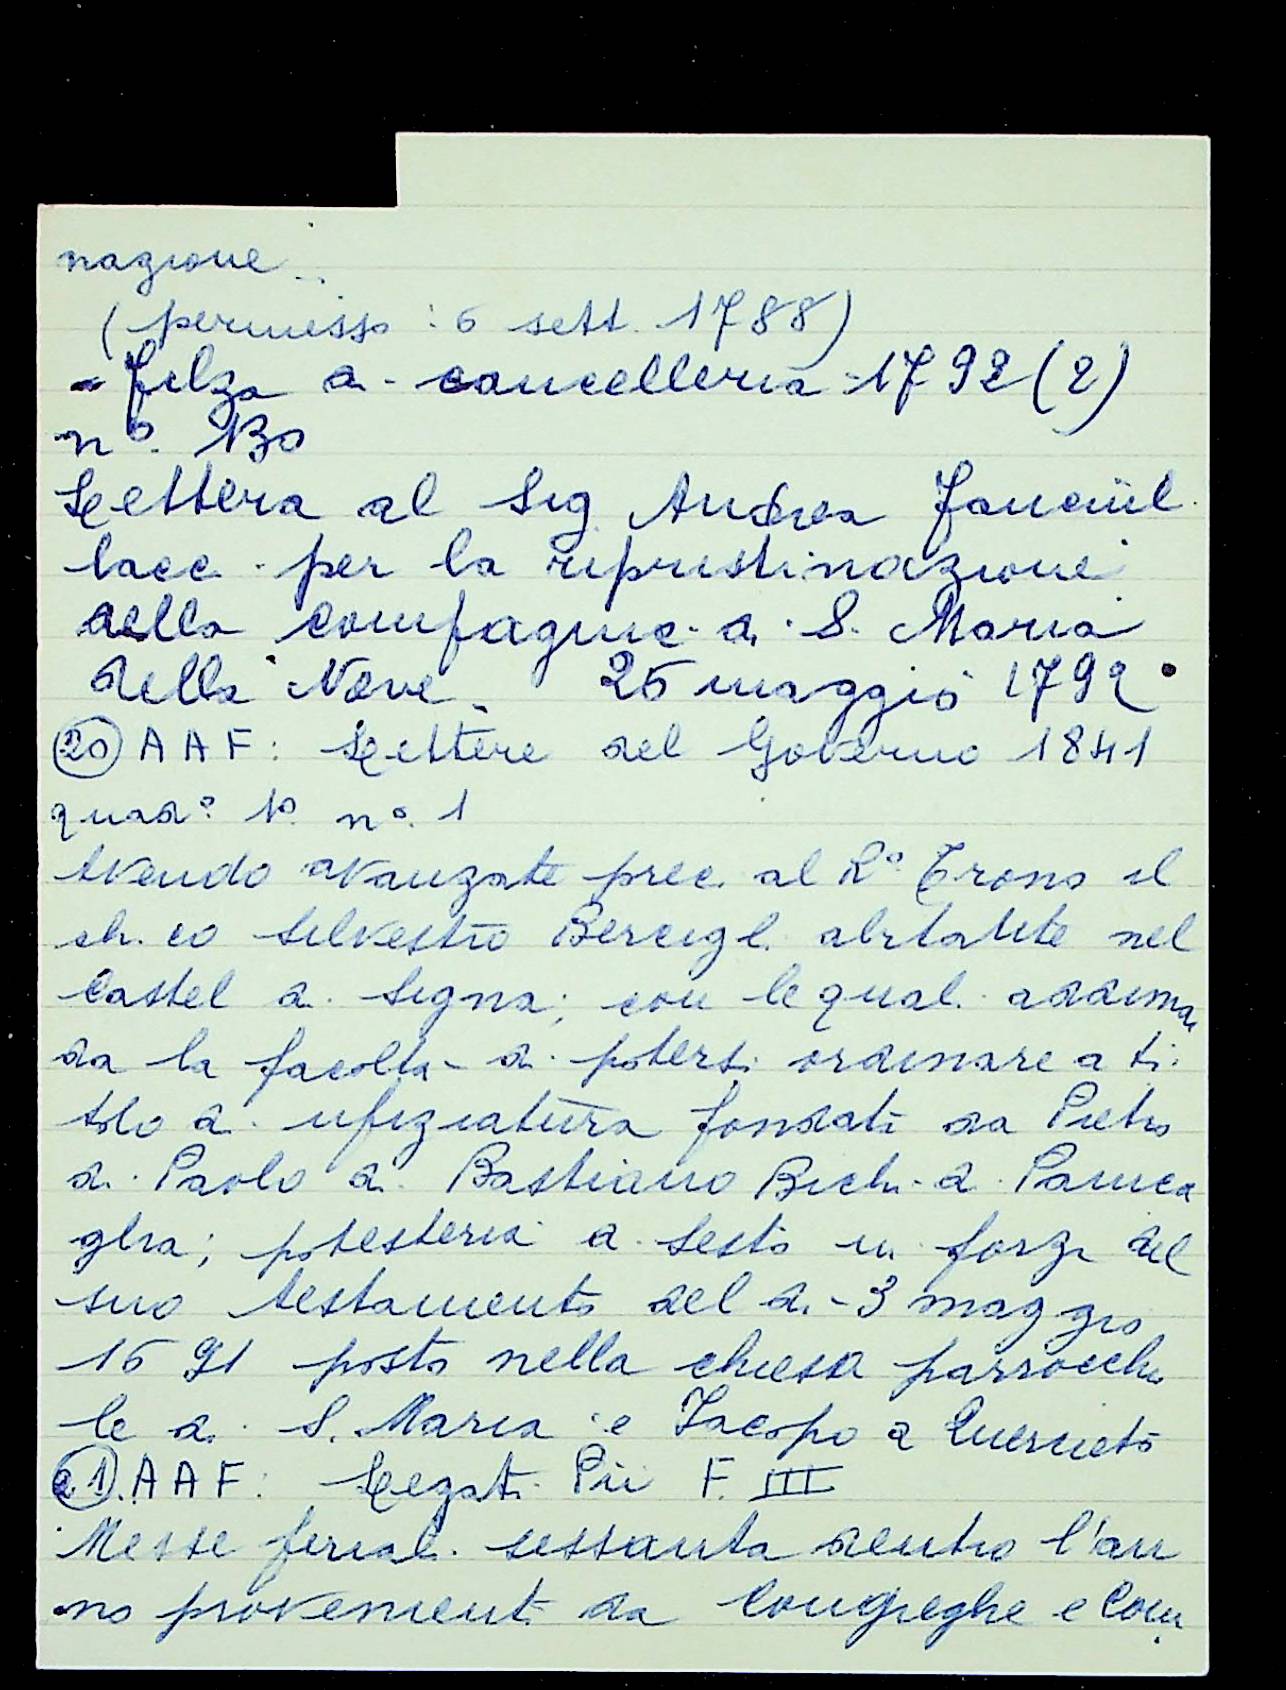 nazione.
(permesso: 6 sett. 1788)
- filza di cancelleria 1792 (2)
n°. 130
Lettera al Sig. Andrea Fanciul
lacci per la ripristinazione
della compagnia di S. Maria
della Neve. 25 maggio 1792
(20) AAF: Lettere del Governo 1841
quad° 1° n°. 1
Avendo avanzate preci al R° Trono il
ch.co Silvestro abitante nel
Castel di Signa; con le quali addiman
da la facoltà di potersi ordinare a ti
tolo di ufiziatura fondata da Pietro
di Paolo di Bastiano Bichi di Panica
glia; potesteria di Sesto in forza del
suo testamento del di 3 maggio
1691 posto nella chiesa parrocchia
le di S. Maria e Jacopo a Querceto
(21) AAF: Legati Pii F. III
Messe feriali sessanta dentro l'an
no provenienti da Congreghe e Com